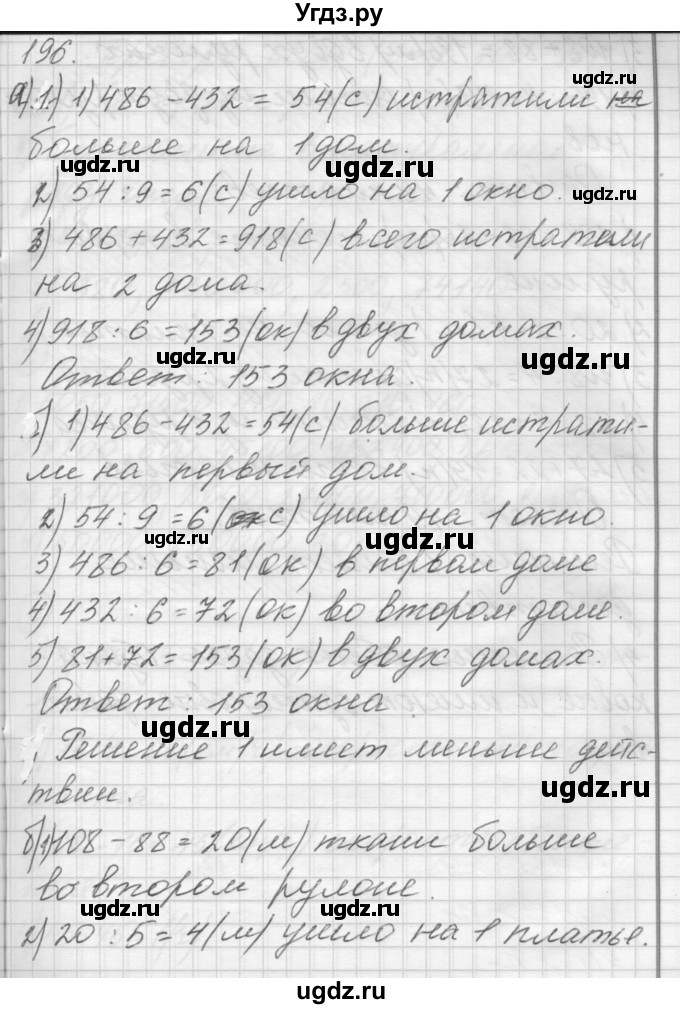 Угдз.ру
196.
а) 1.) 1) 486 - 432 = 54(с) истратили на
больше на 1 дом.
2) 54 : 9 = 6(с) ушло на 1 окно.
3) 486 + 432 = 918(с) всего истратили
на 2 дома.
4) 918 : 6 = 153(ок) в двух домах.
Ответ: 153 окна.
1) 486 - 432 = 54(с) больше истрати-
ли на первый дом.
2) 54 : 9 = 6(с) ушло на 1 окно.
3) 486 : 6 = 81(ок) в первом доме
4) 432 : 6 = 72(ок) во втором доме.
5) 81 + 72 = 153(ок) в двух домах.
Ответ: 153 окна
Решение 1 имеет меньше дейс-
твии.
б) 1) 108 - 88 = 20(м) ткани больше
во втором рулоне.
2) 20 : 5 = 4(м) ушло на 1 платье.
ugdz.ru